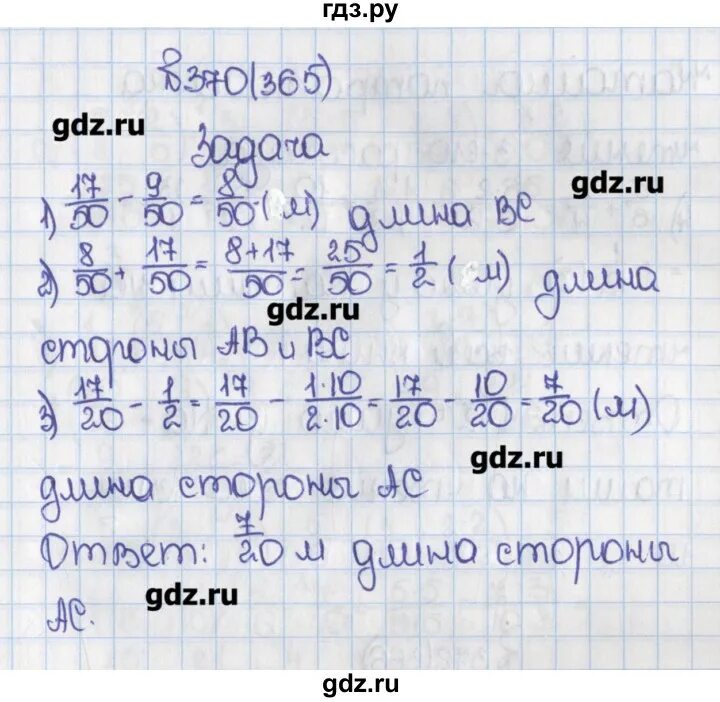 гдз.ру
№370(365)
gdz.ru
Задача
gdz.ru
1) 17/50 - 9/50 = 8/50 (м) длина ВС
2) 8/50 + 17/50 = 8+17/50 = 25/50 = 1/2 (м) длина
gdz.ru
стороны АВ и ВС
3) 17/20 - 1/2 = 17/20 - 1·10/2·10 = 17/20 - 10/20 = 7/20 (м)
gdz.ru
длина стороны АС
Ответ: 7/20 м длина стороны
gdz.ru
АС.
gdz.ru